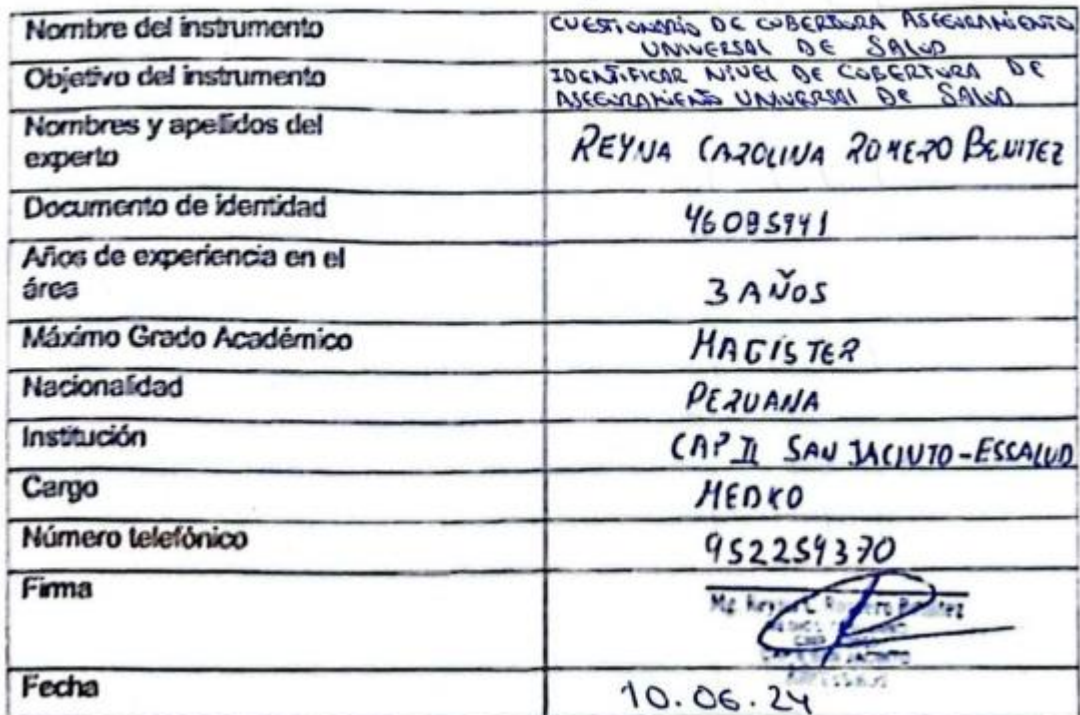 Nombre del instrumento
CUESTIONARIO DE COBERTURA ASEGURAMIENTO
UNIVERSAL DE SALUD
Objetivo del instrumento
IDENTIFICAR NIVEL DE COBERTURA DE
ASEGURAMIENTO UNIVERSAL DE SALUD
Nombres y apellidos del
experto
REYNA CAROLINA ROMERO BENITEZ
Documento de identidad
46095941
Años de experiencia en el
área
3 AÑOS
Máximo Grado Académico
MAGISTER
Nacionalidad
PERUANA
Institución
CAP II SAN JACINTO-ESSALUD
Cargo
MEDICO
Número telefónico
952259370
Firma
Mg. Reyna C. Romero Benitez
Fecha
10.06.24